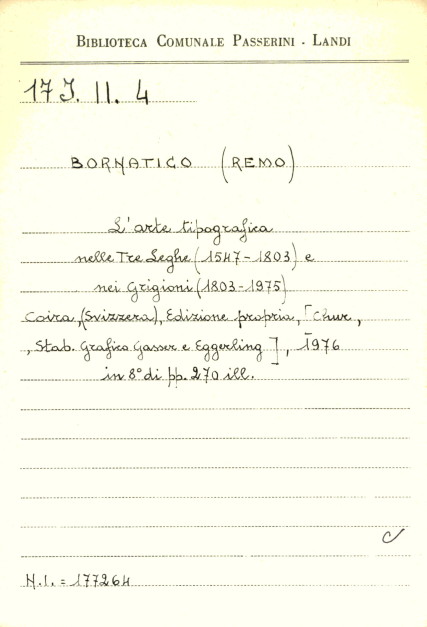 BIBLIOTECA COMUNALE PASSERINI - LANDI
17 J. II. 4
BORNATICO (REMO)
L'arte tipografica
nelle Tre Leghe (1547-1803) e
nei Grigioni (1803-1975)
Coira, (Svizzera), Edizione propria, [Chur,
, Stab. Grafico Gasser e Eggerling], 1976
in 8° di pp. 270 ill.
c/
N.I. = 177264